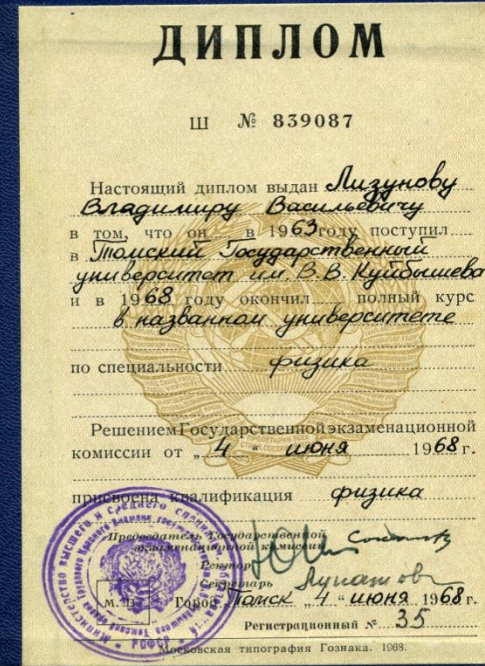 ДИПЛОМ
Ш № 839087
Настоящий диплом выдан Лизунову
Владимиру Васильевичу
в том, что он в 1963 году поступил
в Томский Государственный
университет им. В. В. Куйбышева
и в 1968 году окончил полный курс
в названном университете
по специальности физика
Решением Государственной экзаменационной
комиссии от „4“ июня 1968 г.
присвоена квалификация физика
Председатель Государственной
экзаменационной комиссии
Ректор
Секретарь
М. П. Город Томск „4“ июня 1968 г.
Регистрационный № 35
Московская типография Гознака. 1968.
Министерство высшего и среднего
РСФСР